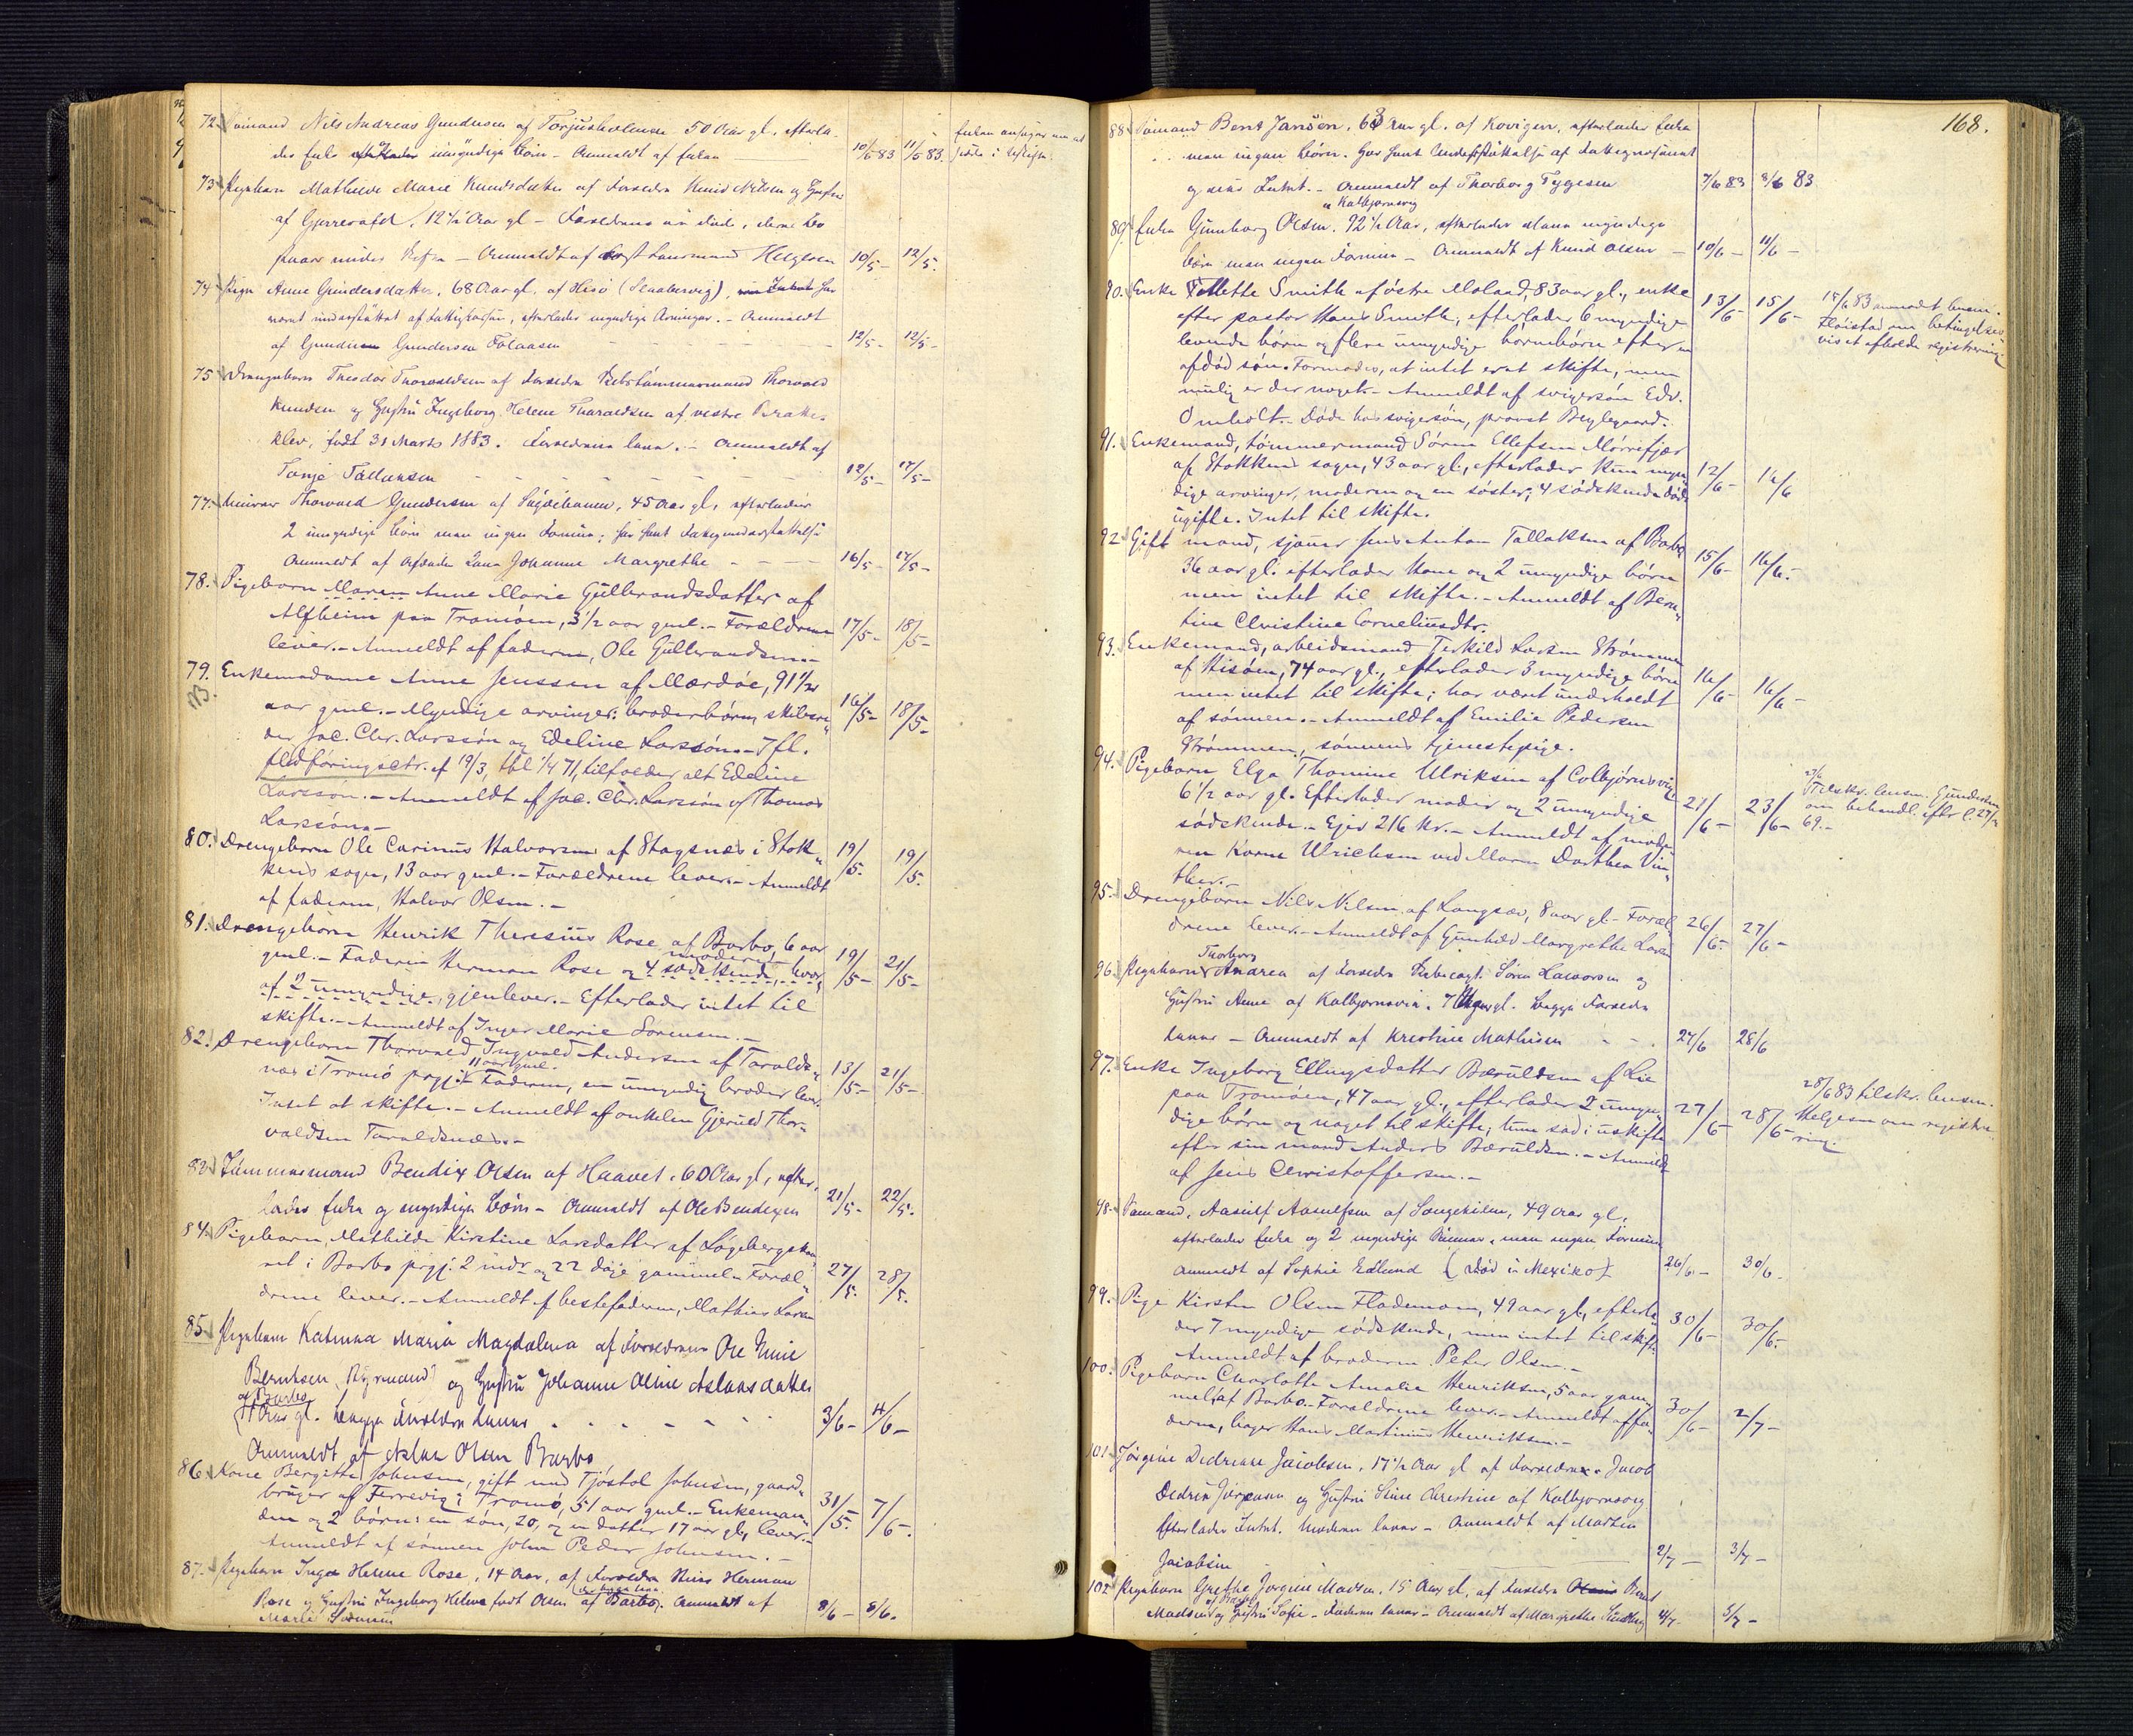 72. Sømand Nils Andreas Gundersen af Torjusholmen 50 Aar gl. efterla-
der Enke umyndige Børn - Anmeldt af Enken 10/5 83 11/5 83. Enken ansøger om at
sidde i uskifte.
73. Pigebarn Mathilde Marie Knudsdatter af Forældre Knud Nilsen og Hustru
af Gjerrevold, 12 1/2 Aar gl - Forældrene
- Anmeldt af Lensmand Helgesen 10/5 - 12/5.
74 Pige Anne Gundersdatter, 68 Aar gl. af Hisø har
været understøttet af Fattigkassen, efterlader myndige Arvinger. - Anmeldt
af Gundersen 12/5 - 12/5 -
75 Drengebarn Theodor Thorvaldsen af Forældre Skibstømmermand Thorvald
Knudsen og Hustru Ingeborg Helene Tharaldsen af vestre Brække-
klev, født 31 Marts 1883. Forældrene lever. - Anmeldt af
Tonje Tallaksen 12/5 - 17/5 -
77. Murer Thorvald Gundersen af 45 Aar gl, efterlader
2 umyndige børn men ingen Formue; har havt Fattigunderstøttelse
Anmeldt af Afdødes Johanne Margrethe - - - 16/5 - 17/5 -
78. Pigebarn Maren Anne Marie Gulbrandsdatter af
Alfheim paa Tromøen, 3 1/2 aar gml. - Forældrene 17/5 - 18/5 -
lever. - Anmeldt af faderen, Ole Gulbrandsen. -
79. Enkemadame Anne Jenssen af Mærdøe, 91 1/2
aar gml. - Myndige arvinger: broderbørn, skibsre- 16/5 - 18/5 -
der Jac. Chr. Larssøn og Edeline Larssøn. - Ifl.
flødføringsctr. af 19/3, tbl 1/4 71, tilfalder alt Edeline
Larssøn. - Anmeldt af Jac. Chr. Larssøn og Thomas
Larssøn. -
80. Drengebarn Ole Carinus Halvorsen af Stagenæs i Stok- 19/5. 19/5.
kens sogn, 13 aar gml. - Forældrene lever. - Anmeldt
af faderen, Halvor Olsen. -
81. Drengebarn Henrik Theresius Rose af Barbo, 6 aar
gml. - Faderen Herman Rose og 4 sødskende, hvor- 19/5 - 21/5 -
af 2 umyndige, gjenlever. - Efterlader intet til
skifte. - Anmeldt af Inger Marie Sørensen. -
82. Drengebarn Thorvald Ingvald Andersen af Taralds-
næs i Tromø prgj. 11 aar gml. Faderen, en umyndig broder lever. 13/5 - 21/5 -
Intet at skifte. - Anmeldt af onkelen Gjeruld Thor-
valdsen Taraldsnæs. -
83 Tømmermand Bendix Olsen af Haavet, 60 Aar gl, efter-
lader Enke og myndige Børn - Anmeldt af Ole Bendixen 21/5 - 22/5.
84. Pigebarn Mathilde Kirstine Larsdatter af Løgebergskaa-
ret i Barbo prgj. 2 mdr og 22 dage gammel. - Foræl- 27/5. 28/5.
drene lever. - Anmeldt af bestefaderen, Mathias Larsen
85 Pigebarn Katinka Maria Magdalena af Forældrene Ole
Berntsen og Hustru Johanne Oline Aslaksdatter
af Barbo
Aar gl. begge Forældre lever 3/6 - 4/6 -
Anmeldt af Aslak Olsen Barbo
86. Kone Bergitte Johnsen, gift med Tjøstol Johnsen, gaard-
bruger af Færvig i Tromø, 51 aar gml. - Enkeman- 31/5. 7/6 -
den og 2 børn: en søn, 20, og en datter 17 aar gl, lever. -
Anmeldt af sønnen John Peder Johnsen. -
87. Pigebarn Inga Helene Rose, 14 Aar, af Forældre Herman
Rose og Hustru Ingeborg Helene født Olsen af Barbo. Anmeldt af 8/6 - 8/6.
Marie Sørensen
168.
88 Sømand Bent Jansen, 63 Aar gl. af Kovigen, efterlader Enke
men ingen Børn. Har havt Understøttelse af Fattigvæsenet
og eier Intet. - Anmeldt af Thorborg Tygesen 7/6 83 8/6 83
89. Enke Gunborg Olsen, 92 1/2 Aar, efterlader myndige
Børn men ingen Formue - Anmeldt af Knud Olsen - 10/6 - 11/6 -
90. Enke Smith af østre Moland, 83 aar gl., enke 13/6 - 15/6 - 15/6 83 anmodt lensm.
efter pastor Hans Smith, efterlader 6 myndige Fløistad om betingelses-
levende børn og flere umyndige børnebørn efter en vis at afholde registrering
afdød søn. Formodes, at intet er at skifte, men
mulig er der noget. - Anmeldt af svigersøn Edv.
Omholt. - Døde hos svigersøn, provst Bryllegaard. -
91. Enkemand, tømmermand Søren Ellefsen Mørrefjær
af Stokkens sogn, 43 aar gl., efterlader kun myn- 12/6 - 16/6
dige arvinger, moderen og en søster; 4 sødskende døde
ugifte. Intet til skifte.
92 Gift mand, sjøuer Jens Anton Tallaksen af Barbo 15/6 - 16/6 -
36 aar gl. efterlader kone og 2 umyndige børn
men intet til skifte. - Anmeldt af Bern-
tine Christine Corneliusdtr.
93. Enkemand, arbeidsmand Terkild Larsen Strømmen
af Hisøen, 74 aar gl., efterlader 3 myndige børn 16/6 - 16/6 -
men intet til skifte; har været underholdt
af sønnen. - Anmeldt af Emilie Pedersen
Strømmen, sønnens tjenestepige.
94. Pigebarn Elga Thomine Ulriksen af Colbjørnsvig
6 1/2 aar gl. Efterlader moder og 2 umyndige 21/6 - 23/6 - Tilskr. lensm. Gundersen
sødskende. - Ejer 216 kr. - Anmeldt af mode- om behandl. eftr l. 27/ 69. -
ren Karen Ulrichsen ved Maren Dorthea Vin-
ther. -
95. Drengebarn Nils Nilsen af Langsæ, 8 aar gl. - Foræl- 26/6 - 27/6 -
drene lever. - Anmeldt af Gunhild Margrethe Larsen
96. Pigebarn Thorborg Andrea af Forældre Søren Larsen og
Hustru Anne af Kolbjørnsvik, Aar gl. begge Forældre
lever - Anmeldt af Kristine Mathisen 27/6 28/6
97. Enke Ingeborg Ellingsdatter Bæruldsen af Lie
paa Tromøen, 47 aar gl., efterlader 2 umyn- 27/6 - 28/6 - 28/6 83 tilskr. lensm.
dige børn og noget til skifte; hun sad i uskifte Helgesen om registre-
efter sin mand Anders Bæruldsen. - Anmeldt ring.
af Jens Christoffersen. -
98. Sømand, Aasulf Aasulfsen af Songekilen, 49 Aar gl,
efterlader Enke og 2 myndige men ingen Formue
Anmeldt af Sophie Edlund (Død i Mexiko) 26/6 - 30/6.
99. Pige Kirsten Olsen Flademoen, 49 aar gl, efterla- 30/6 - 30/6 -
der 7 myndige sødskende, men intet til skifte.
Anmeldt af broderen Peter Olsen. -
100. Pigebarn Charlotte Amalie Henriksen, 5 aar gam-
mel, af Barbo. - Forældrene lever. - Anmeldt af fa- 30/6 - 2/7 -
deren, bager Hans Martinius Henriksen. -
101 Jørgine Dedrikke Jacobsen, 17 1/2 Aar gl af Forældre Jacob
Dedrik Jørgensen og Hustru Christine af Kolbjørnsvig
Efterlader Intet. Moderen lever - Anmeldt af Martin
Jacobsen 2/7 - 3/7 -
102 Pigebarn Grethe Jørgine Madsen, 15 Aar gl, af Forældre Bernt
Madsen og Hustru Sofie - Faderen lever - Anmeldt af Margrethe 4/7 - 5/7 -